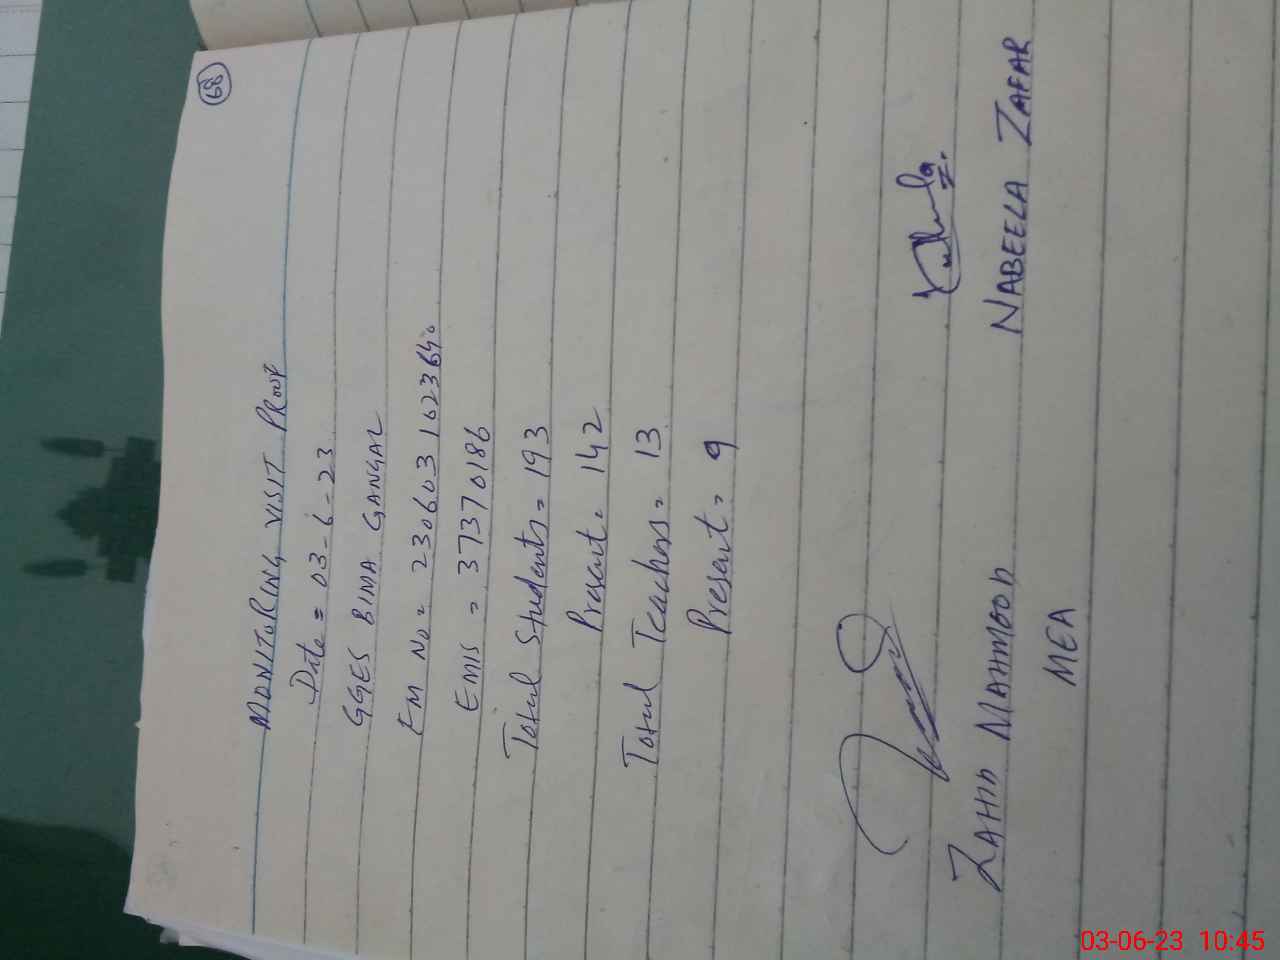 68
MONITORING VISIT PROOF
Date = 03-6-23
GGES BIMA GANGAL
EM No = 230603162364
EMIS = 37370186
Total Students = 193
Present = 142
Total Teachers = 13
Present = 9
ZAHID MAHMOOD
NABEELA ZAFAR
MEA
03-06-23 10:45